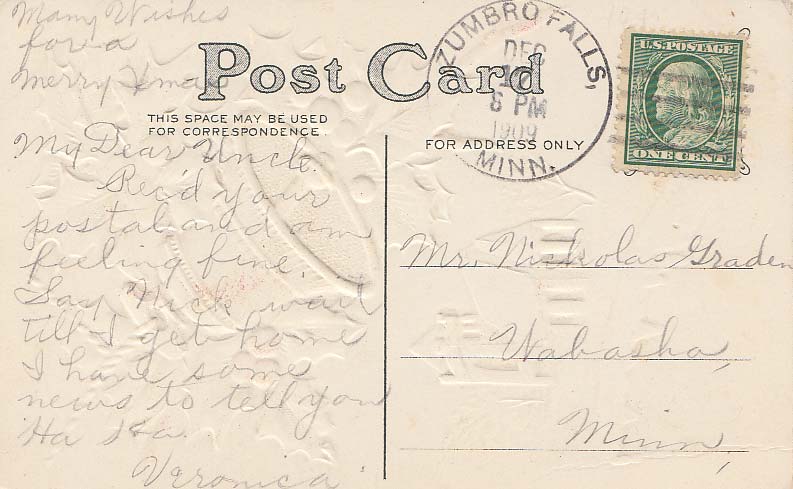 Many Wishes
for a
Merry Xmas
Post Card
THIS SPACE MAY BE USED
FOR CORRESPONDENCE.
My Dear Uncle.
Rec'd your
postal and am
feeling fine.
Say Nick wait
till I get home
I have some
news to tell you
Ha Ha.
Veronica
ZUMBRO FALLS,
DEC
6 PM
1909
MINN.
U.S. POSTAGE
ONE CENT
FOR ADDRESS ONLY
Mr. Nickolas Graden
Wabasha,
Minn,